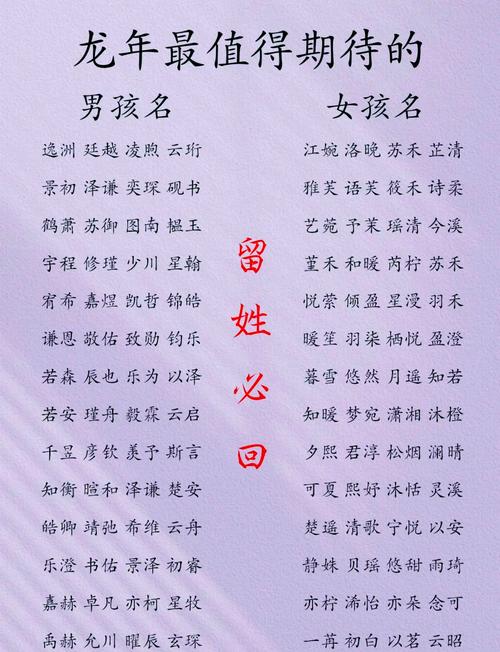 龙年最值得期待的
男孩名
逸洲 廷越 凌煦 云珩
景初 泽谦 奕琛 砚书
鹤萧 苏御 图南 韫玉
宇程 修瑾 少川 星翰
宥希 嘉煜 凯哲 锦皓
谦恩 敬佑 致勋 钧乐
若森 辰也 乐为 以泽
若安 瑾舟 毅霖 云启
千昱 彦钦 羡予 斯言
知衡 暄和 泽谦 楚安
皓卿 靖弛 希维 云舟
乐澄 书佑 景泽 初睿
嘉赫 卓凡 亦柯 星牧
禹赫 允川 曜辰 玄琛
留姓必回
女孩名
江婉 洛晚 苏禾 芷清
雅芙 语芙 筱禾 诗柔
艺苑 予茉 瑶清 今溪
堇禾 和暖 芮柠 苏禾
悦萦 倾盈 星漫 羽禾
暖笙 羽柒 栖悦 盈澄
暮雪 悠然 月遥 知若
知暖 梦宛 潇湘 沐橙
夕熙 君淳 松烟 澜晴
可夏 熙妤 沐恬 灵溪
楚遥 清歌 宁悦 以安
静姝 贝瑶 悠甜 雨琦
亦柠 浠怡 亦朵 念可
一苒 初白 以茗 云昭